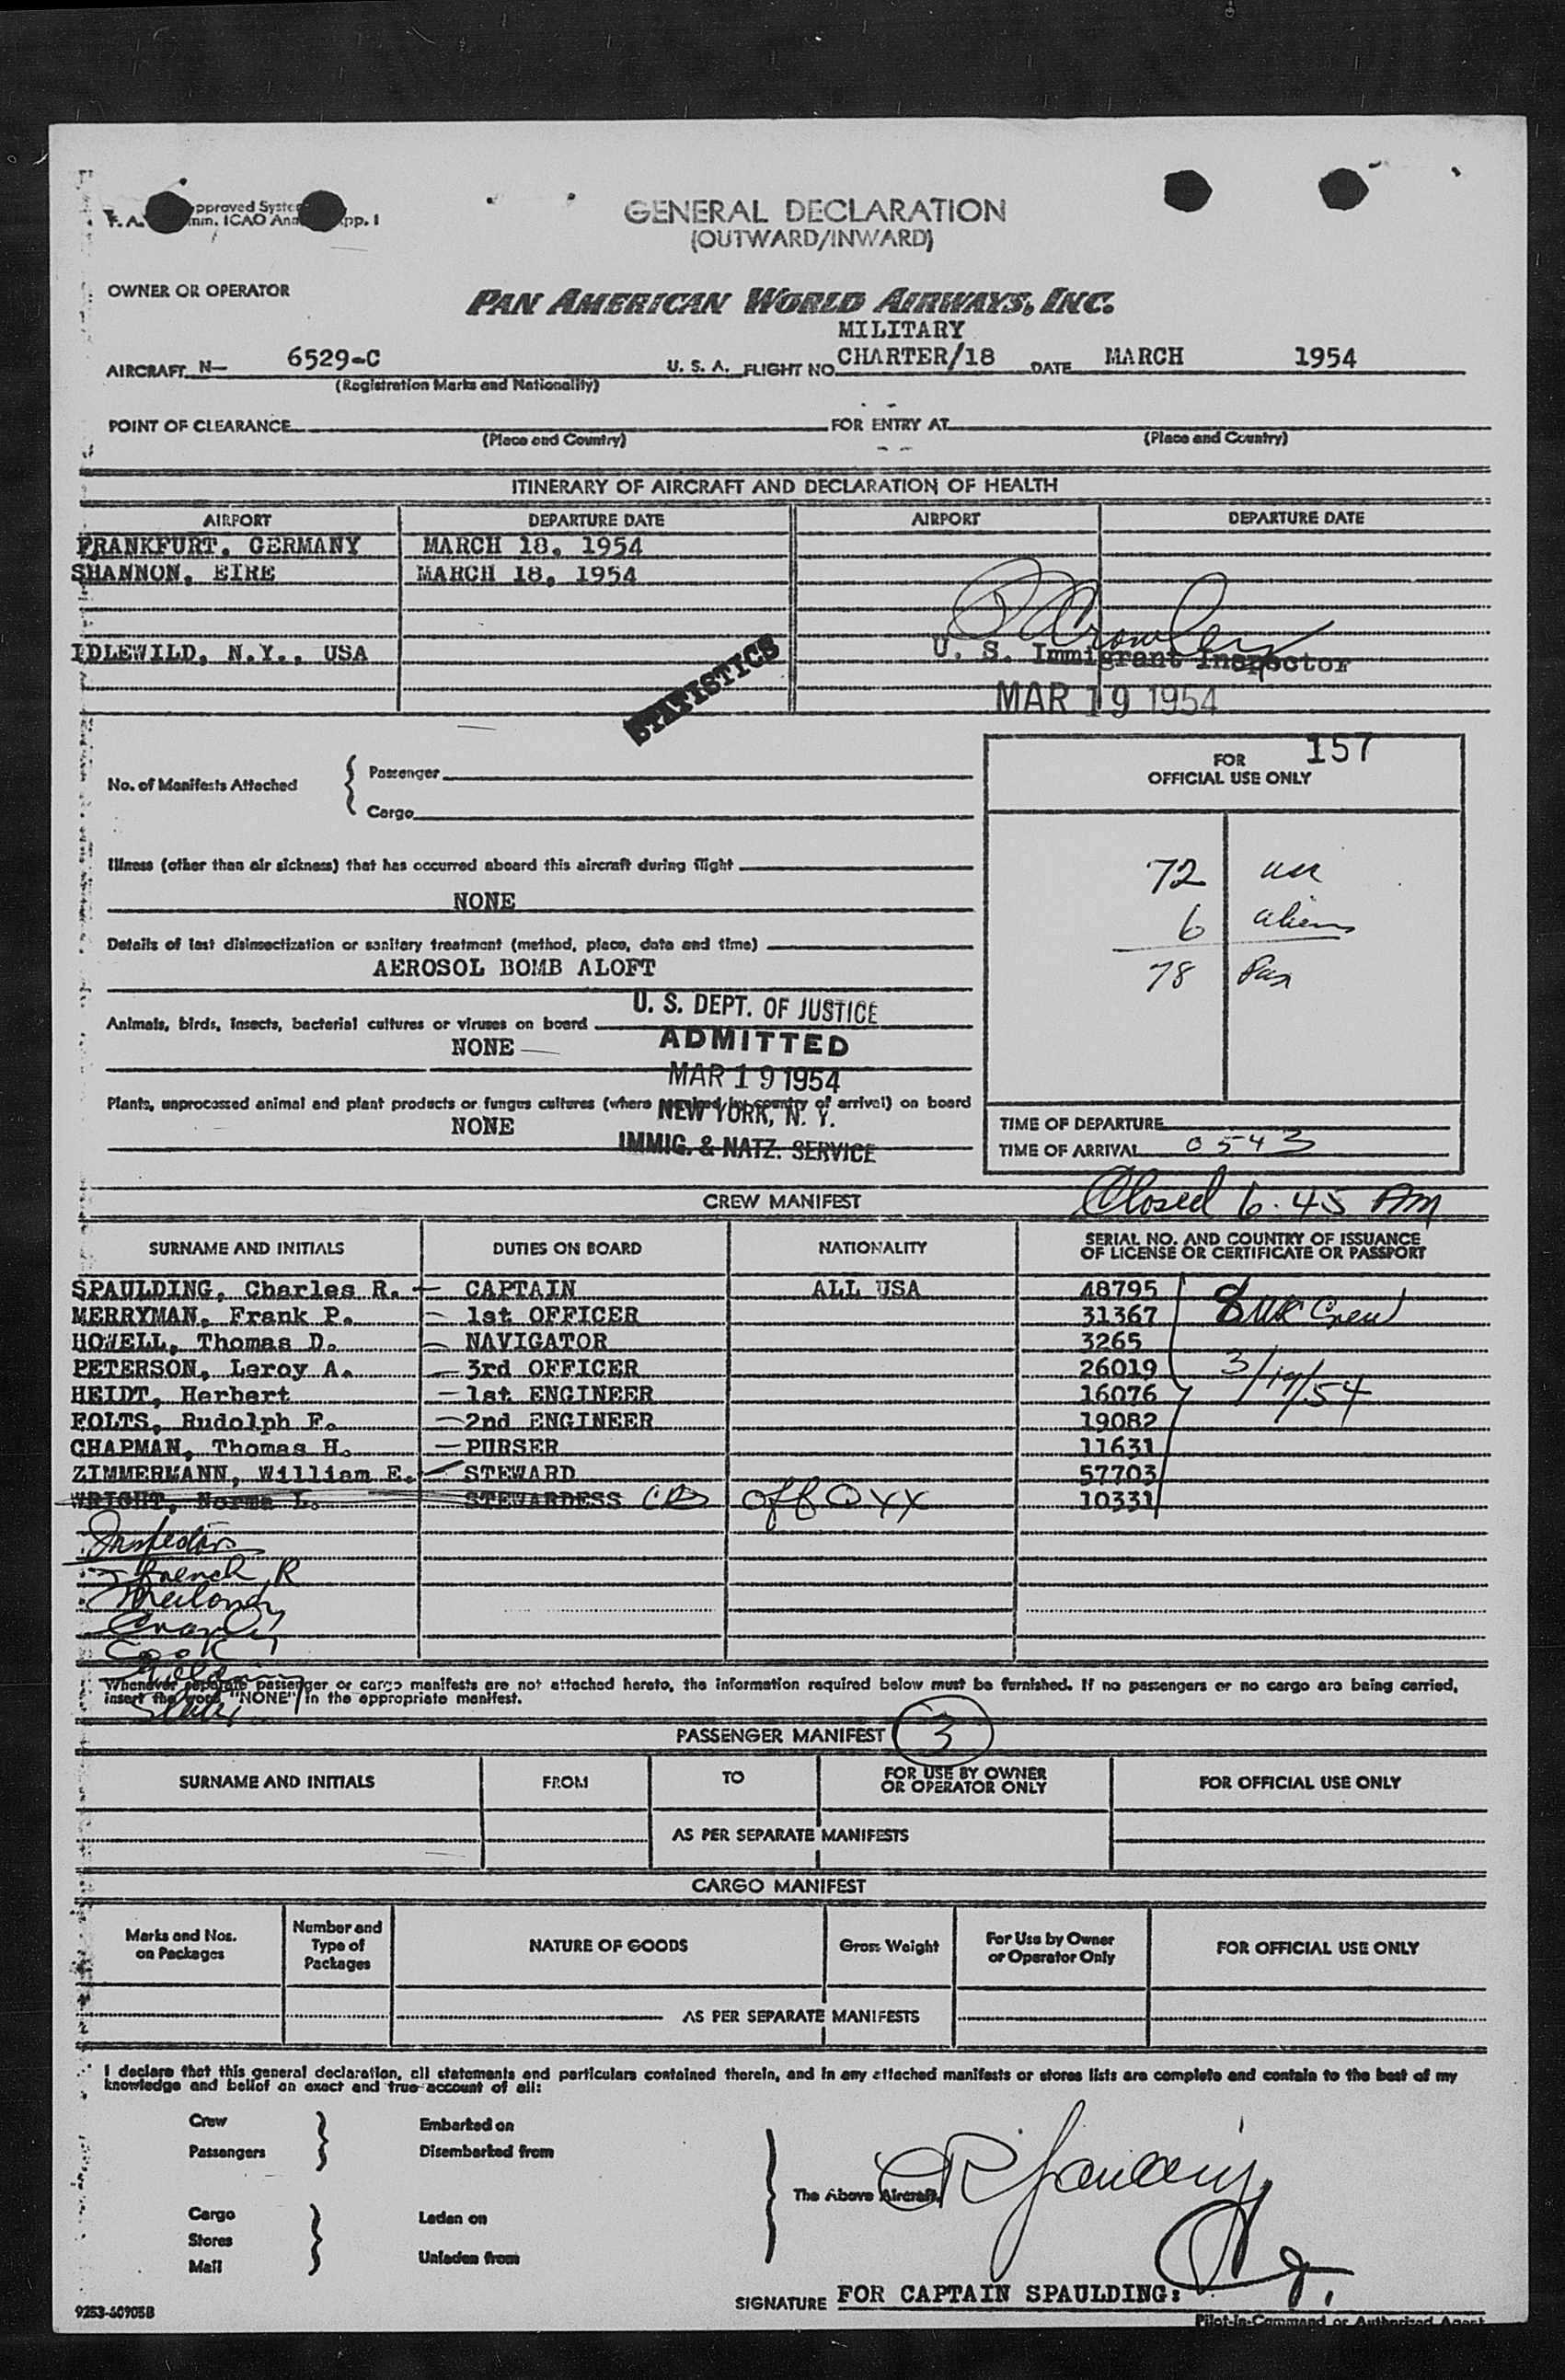 GENERAL DECLARATION
(OUTWARD/INWARD)
OWNER OR OPERATOR
PAN AMERICAN WORLD AIRWAYS, INC.
MILITARY
AIRCRAFT N— 6529-C U. S. A. FLIGHT NO. CHARTER/18 DATE MARCH 1954
(Registration Marks and Nationality)
POINT OF CLEARANCE FOR ENTRY AT
(Place and Country) (Place and Country)
ITINERARY OF AIRCRAFT AND DECLARATION OF HEALTH
AIRPORT DEPARTURE DATE AIRPORT DEPARTURE DATE
FRANKFURT, GERMANY MARCH 18, 1954
SHANNON, EIRE MARCH 18, 1954
IDLEWILD, N.Y., USA
STATISTICS
U. S. Immigrant Inspector
MAR 19 1954
FOR 157
OFFICIAL USE ONLY
No. of Manifests Attached { Passenger
Cargo
72
6 aliens
78 Pax
Illness (other than air sickness) that has occurred aboard this aircraft during flight
NONE
Details of last disinsectization or sanitary treatment (method, place, date and time)
AEROSOL BOMB ALOFT
U. S. DEPT. OF JUSTICE
Animals, birds, insects, bacterial cultures or viruses on board
ADMITTED
NONE
MAR 19 1954
Plants, unprocessed animal and plant products or fungus cultures (where required by country of arrival) on board
NEW YORK, N. Y.
NONE
IMMIG. & NATZ. SERVICE
TIME OF DEPARTURE
TIME OF ARRIVAL 0543
Closed 6.45 AM
CREW MANIFEST
SURNAME AND INITIALS DUTIES ON BOARD NATIONALITY SERIAL NO. AND COUNTRY OF ISSUANCE
OF LICENSE OR CERTIFICATE OR PASSPORT
SPAULDING, Charles R. — CAPTAIN ALL USA 48795
MERRYMAN, Frank P. — 1st OFFICER 31367 8 Crew
HOWELL, Thomas D. — NAVIGATOR 3265
PETERSON, Leroy A. — 3rd OFFICER 26019 3/19/54
HEIDT, Herbert — 1st ENGINEER 16076
FOLTS, Rudolph F. — 2nd ENGINEER 19082
CHAPMAN, Thomas H. — PURSER 11631
ZIMMERMANN, William E. STEWARD 57703
WRIGHT, Norma L. STEWARDESS off 10331
Inspectors
French, R
Cook
Whenever separate passenger or cargo manifests are not attached hereto, the information required below must be furnished. If no passengers or no cargo are being carried,
insert the word "NONE" in the appropriate manifest.
PASSENGER MANIFEST 3
SURNAME AND INITIALS FROM TO FOR USE BY OWNER FOR OFFICIAL USE ONLY
OR OPERATOR ONLY
AS PER SEPARATE MANIFESTS
CARGO MANIFEST
Marks and Nos. Number and NATURE OF GOODS Gross Weight For Use by Owner FOR OFFICIAL USE ONLY
on Packages Type of or Operator Only
Packages
AS PER SEPARATE MANIFESTS
I declare that this general declaration, all statements and particulars contained therein, and in any attached manifests or stores lists are complete and contain to the best of my
knowledge and belief an exact and true account of all:
Crew Embarked on
Passengers Disembarked from
The Above Aircraft.
Cargo Laden on
Stores
Mail Unladen from
SIGNATURE FOR CAPTAIN SPAULDING:
Pilot-in-Command or Authorized Agent
9253-60905B